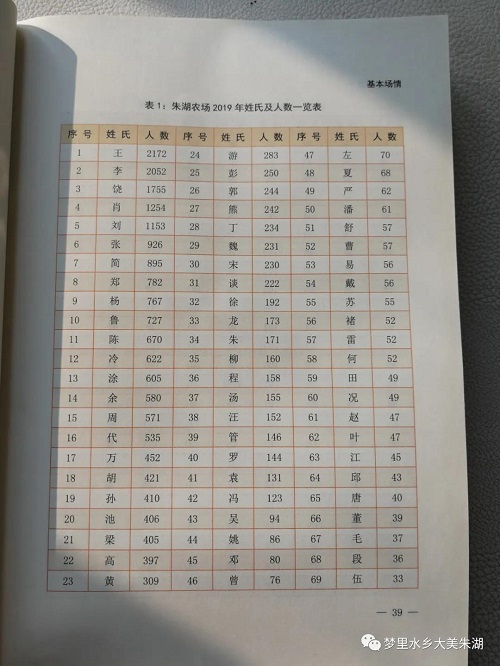 基本场情
表1：朱湖农场2019年姓氏及人数一览表
序号 姓氏 人数 序号 姓氏 人数 序号 姓氏 人数
1 王 2172 24 游 283 47 左 70
2 李 2052 25 彭 250 48 夏 68
3 饶 1755 26 郭 244 49 严 62
4 肖 1254 27 熊 242 50 潘 61
5 刘 1153 28 丁 234 51 舒 57
6 张 926 29 魏 231 52 曹 57
7 简 895 30 宋 230 53 易 56
8 郑 782 31 谈 222 54 戴 56
9 杨 767 32 徐 192 55 苏 55
10 鲁 727 33 龙 173 56 褚 52
11 陈 670 34 朱 171 57 雷 52
12 冷 622 35 柳 160 58 何 52
13 涂 605 36 程 158 59 田 49
14 余 580 37 汤 155 60 况 49
15 周 571 38 汪 152 61 赵 47
16 代 535 39 管 146 62 叶 47
17 万 452 40 罗 144 63 江 45
18 胡 421 41 袁 131 64 邱 43
19 孙 410 42 冯 123 65 唐 40
20 池 406 43 吴 94 66 董 39
21 梁 405 44 姚 86 67 毛 37
22 高 397 45 邓 80 68 段 36
23 黄 309 46 曾 76 69 伍 33
— 39 —
梦里水乡大美朱湖